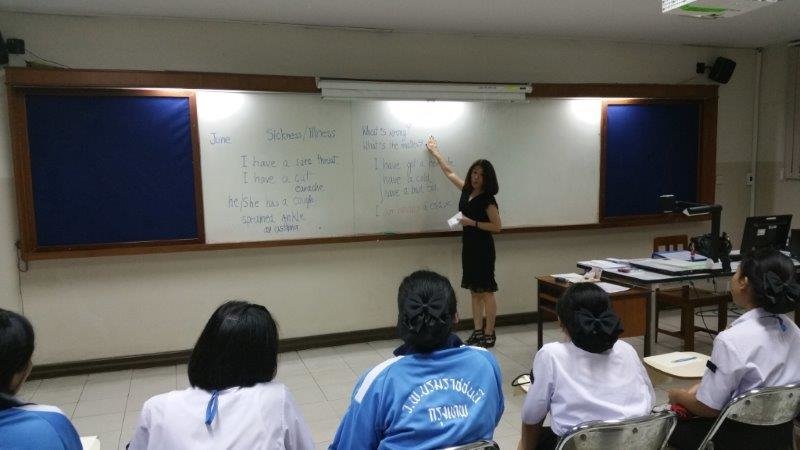 June Sickness/Illness
I have a sore throat
I have a cut
earache
he/She has a cough
sprained ankle
asthma
What's wrong?
What's the matter?
I have got a
I have a cold
I have a bad
I am a
ร.พ.บรมราชชนนี
กรุงเทพ